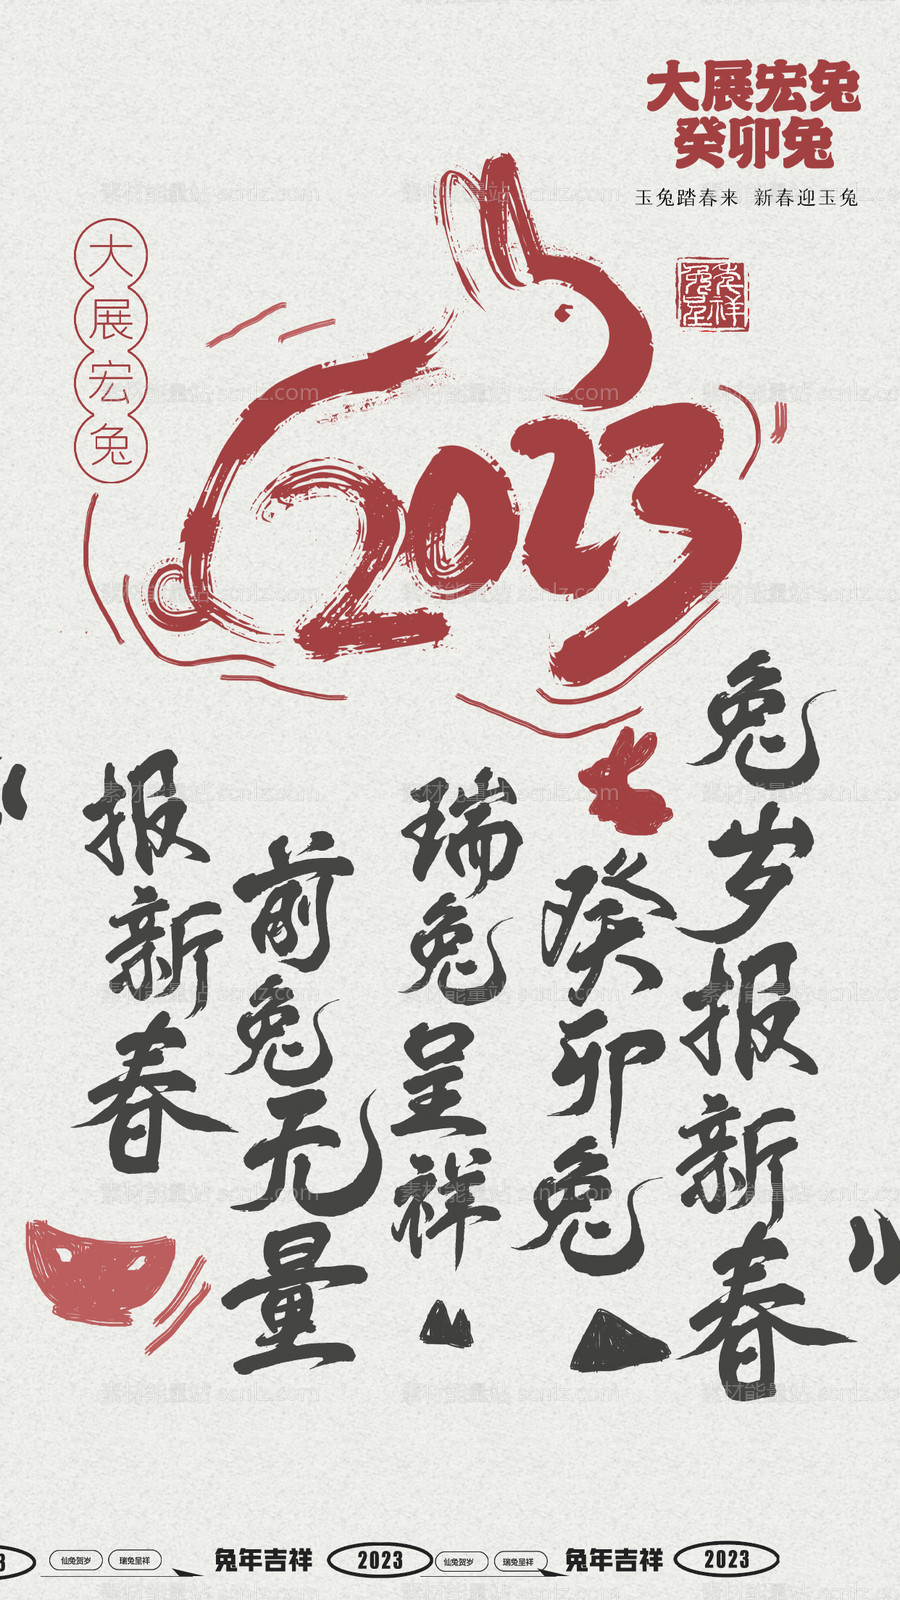 大展宏兔
癸卯兔
玉兔踏春来 新春迎玉兔
大展宏兔
2023
兔岁报新春
癸卯兔
瑞兔呈祥
前兔无量
报新春
仙兔贺岁
瑞兔呈祥
兔年吉祥
2023
仙兔贺岁
瑞兔呈祥
兔年吉祥
2023
素材能量站 scnlz.com